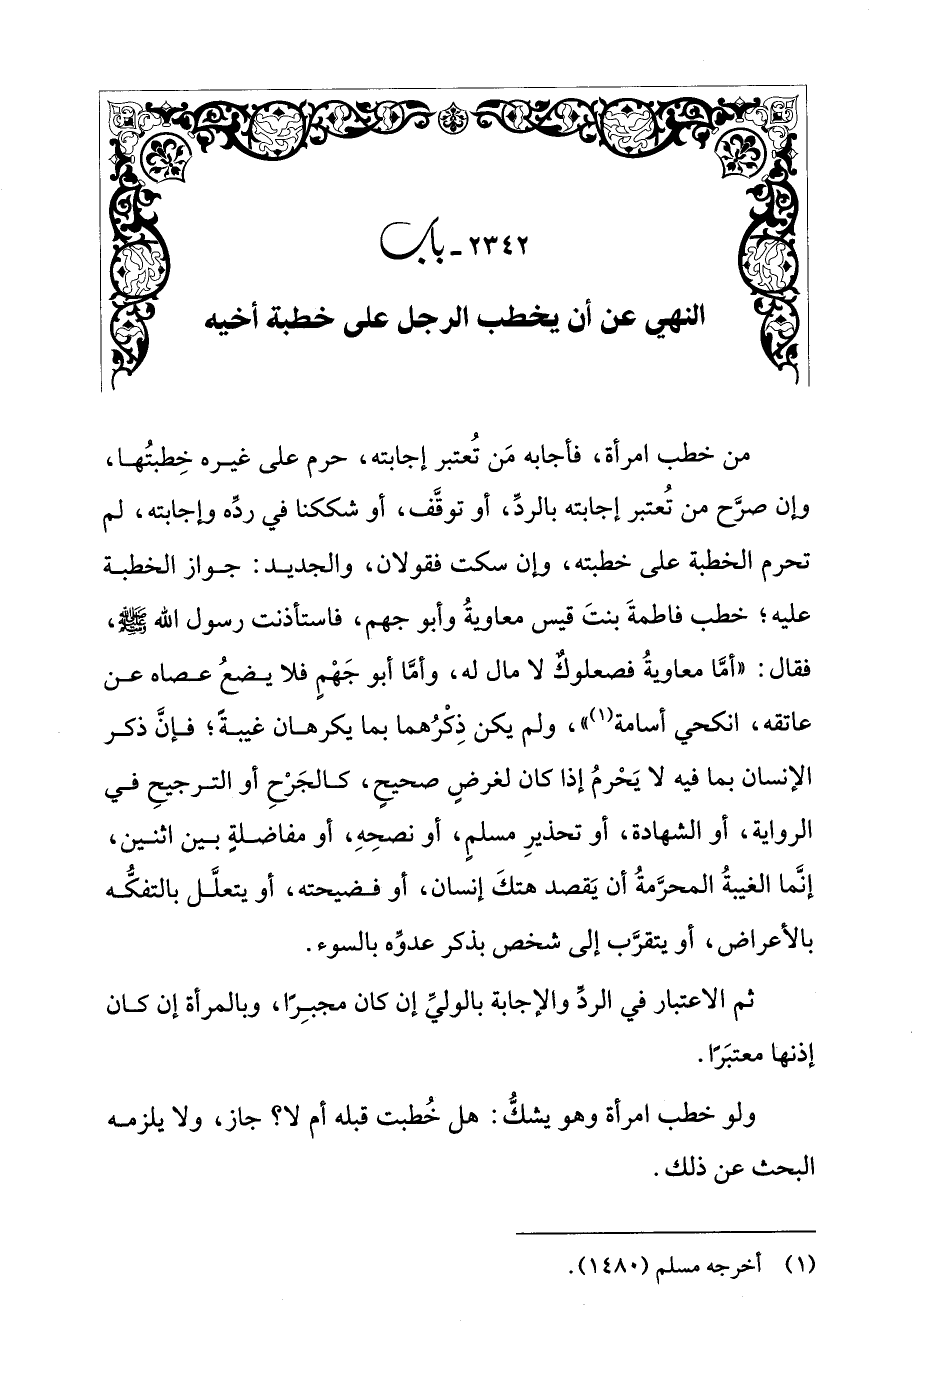 ٢٣٤٢ - باب
النهي عن أن يخطب الرجل على خطبة أخيه
من خطب امرأة، فأجابه مَن تُعتبر إجابته، حرم على غيره خِطبتُها،
وإن صرَّح من تُعتبر إجابته بالردِّ، أو توقَّف، أو شككنا في ردِّه وإجابته، لم
تحرم الخطبة على خطبته، وإن سكت فقولان، والجديد: جواز الخطبة
عليه؛ خطب فاطمةَ بنتَ قيس معاويةُ وأبو جهم، فاستأذنت رسول الله ﷺ،
فقال: «أمَّا معاويةُ فصعلوكٌ لا مال له، وأمَّا أبو جَهْمٍ فلا يضعُ عصاه عن
عاتقه، انكحي أسامة(١)»، ولم يكن ذِكْرُهما بما يكرهان غيبةً؛ فإنَّ ذكر
الإنسان بما فيه لا يَحْرمُ إذا كان لغرضٍ صحيحٍ، كالجَرْحِ أو الترجيحِ في
الرواية، أو الشهادة، أو تحذيرِ مسلمٍ، أو نصحِهِ، أو مفاضلةٍ بين اثنين،
إنَّما الغيبةُ المحرَّمةُ أن يَقصد هتكَ إنسان، أو فضيحته، أو يتعلَّل بالتفكُّه
بالأعراض، أو يتقرَّب إلى شخص بذكر عدوِّه بالسوء.
ثم الاعتبار في الردِّ والإجابة بالوليِّ إن كان مجبِرًا، وبالمرأة إن كان
إذنها معتبَرًا.
ولو خطب امرأة وهو يشكُّ: هل خُطبت قبله أم لا؟ جاز، ولا يلزمه
البحث عن ذلك.
(١) أخرجه مسلم (١٤٨٠).